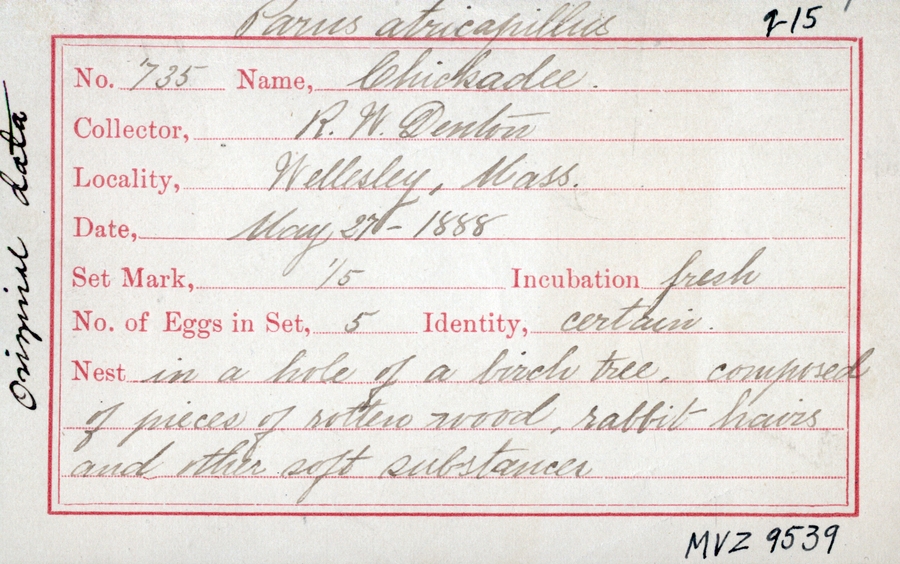 Parus atricapillus
2-15
No. 735 Name, Chickadee.
Collector, R. W. Denton
Locality, Wellesley, Mass.
Date, May 27 - 1888
Set Mark, 1/5 Incubation fresh
No. of Eggs in Set, 5 Identity, certain.
Nest in a hole of a birch tree. composed
of pieces of rotten wood, rabbit hairs
and other soft substances
Original data
MVZ 9539